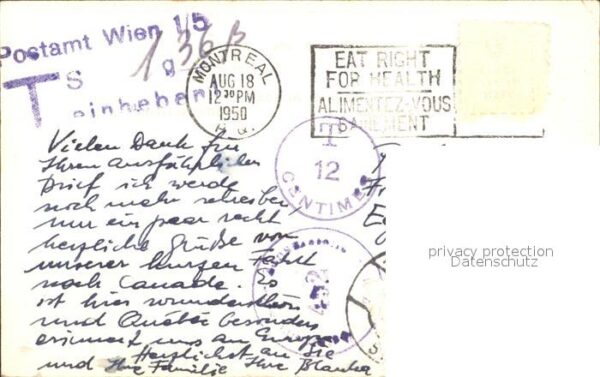 Postamt Wien 1/5
T S 1 36 g
einheben
MONTREAL
AUG 18
12 30 PM
1950
P.Q.
EAT RIGHT
FOR HEALTH
ALIMENTEZ-VOUS
SAINEMENT
T
12
CENTIMES
privacy protection
Datenschutz
Vielen Dank für
Ihren ausführlichen
Brief ich werde
noch mehr schreiben,
nur ein paar recht
herzliche Grüße von
unserer kurzen Fahrt
nach Canada. Es
ist hier wunderschön
und Québec besonders
erinnert uns an Europa
Herzlichst an Sie
und Ihre Familie Ihre Blanka